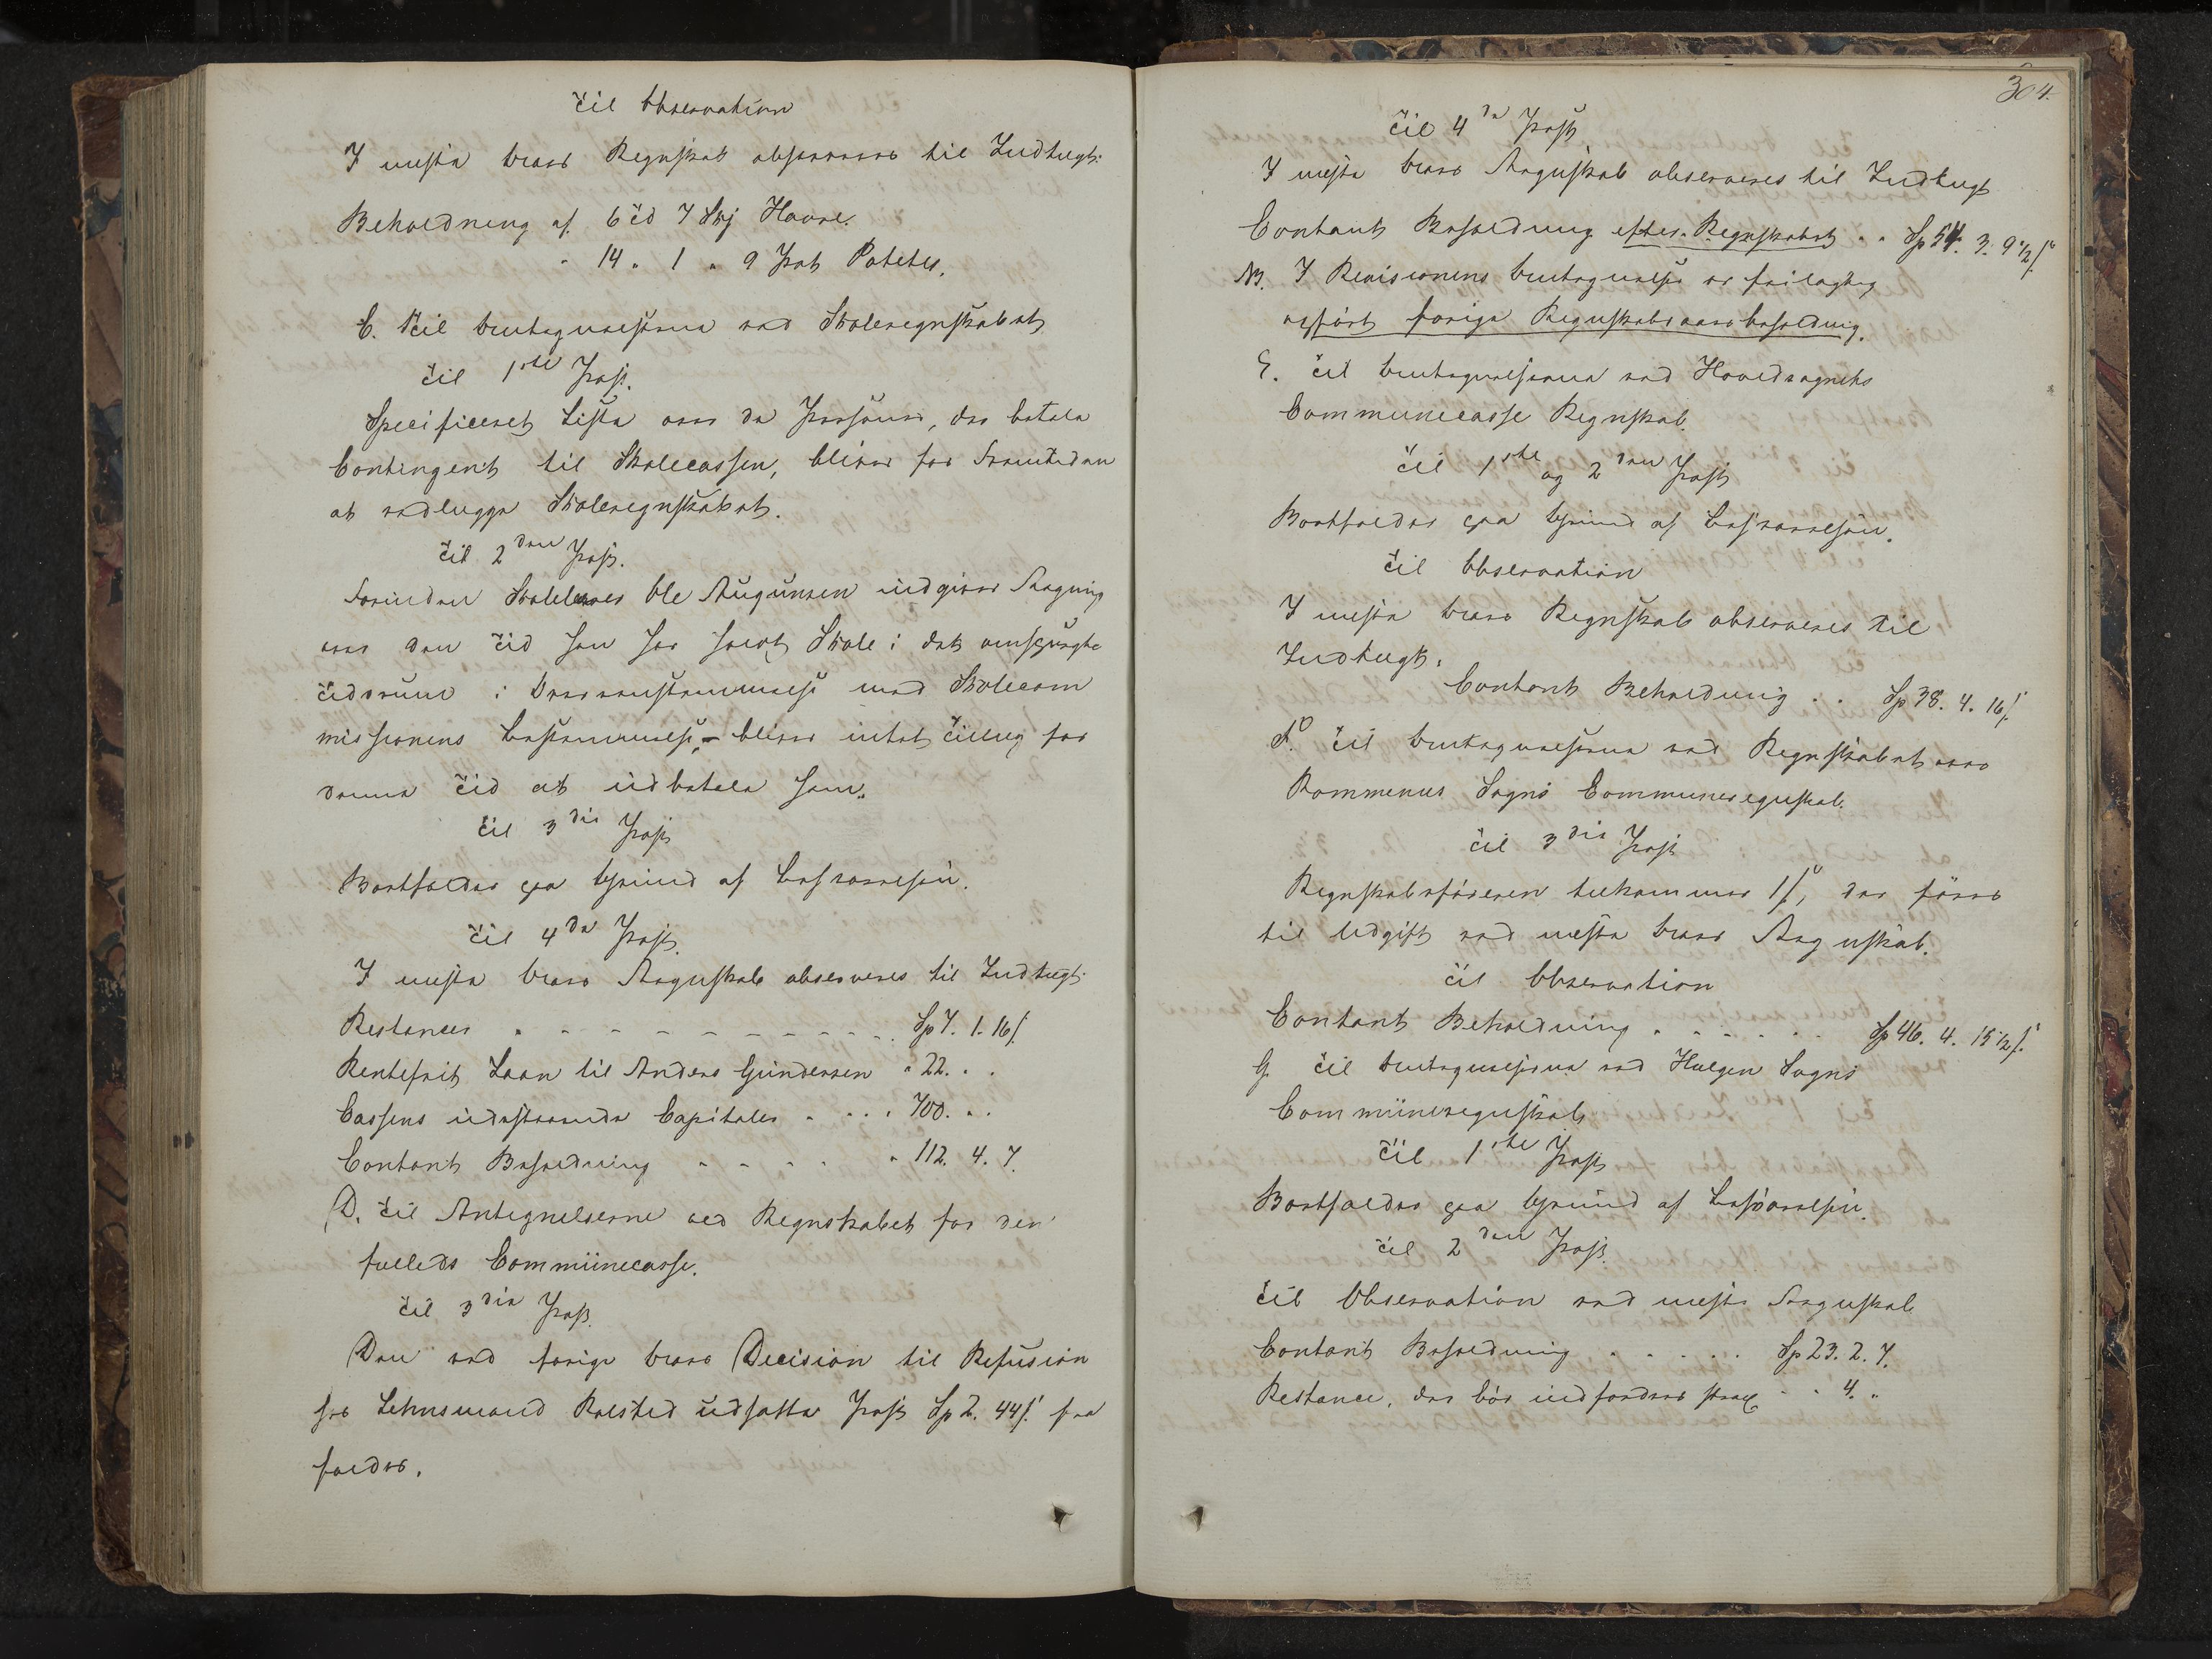 Til Observation
I næste Aars Regnskab observeres til Indtægt:
Beholdning af 6 Td 7 Skj Havre.
" 14 " 1 " 9 Pot Potetes.
C. Til Antegnelserne ved Skoleregnskabet
Til 1ste Post.
Specificeret Liste over de Personer, der betale
Contingent til Skolecassen, bliver for Fremtiden
at vedlægge Skoleregnskabet.
Til 2den Post.
Forinden Skolelærer Ole Augunsen udgiver Regning
over den Tid han har holdt Skole i det omspurgte
Tidsrum i Overensstemmelse med Skolecom
missionens Bestemmelse, - bliver intet Tillæg for
denne Tid at udbetale ham.
Til 3die Post
Bortfalder paa Grund af Besvarelsen.
Til 4de Post.
I næste Aars Regnskab observeres til Indtægt:
Restancer . - - - - - - - - - Sp 7. 1. 16 s.
Rentefrit Laan til Anders Gundersen " 22. . .
Cassens udestaaende Capitaler - - . . 700. . .
Contant Beholdning - - - - " 112. 4. 7.
D. Til Antegnelserne ved Regnskabet for den
fælleds Communecasse.
Til 3die Post.
Den ved forige Aars Decision til Refusion
hos Lehnsmand Rolsted udsatte Post Sp 2. 44 s. fra
faldes.
304.
Til 4de Post
I næste Aars Regnskab observeres til Indtægt
Contant Beholdning efter Regnskabet . . Sp 54. 3. 9 1/2 s.
NB. I Revisionens Antegnelse er feilagtig
opført forige Regnskabsaars beholdning.
E. Til Antegnelserne ved Hovedsognets
Communecasse Regnskab.
Til 1ste og 2den Post
Bortfalder paa Grund af Besvarelsen.
Til Observation
I næste Aars Regnskab observeres til
Indtægt.
Contant Beholdning . . Sp 38. 4. 16 s.
F. Til Antegnelserne ved Regnskabet over
Rommenes Sogns Communeregnskab.
Til 3die Post
Regnskabsføreren tilkommer 1 s., der føres
til Udgift ved næste Aars Regnskab.
Til Observation
Contant Beholdning . . - - . . Sp 46. 4. 15 1/2 s.
G. Til Antegnelserne ved Hælgen Sogns
Communeregnskab
Til 1ste Post
Bortfalder paa Grund af Besvarelsen.
Til 2den Post.
Til Observation ved næste Regnskab
Contant Beholdning . . . . . Sp 23. 2. 7.
Restance, der bør indfordres strax - . 4. "